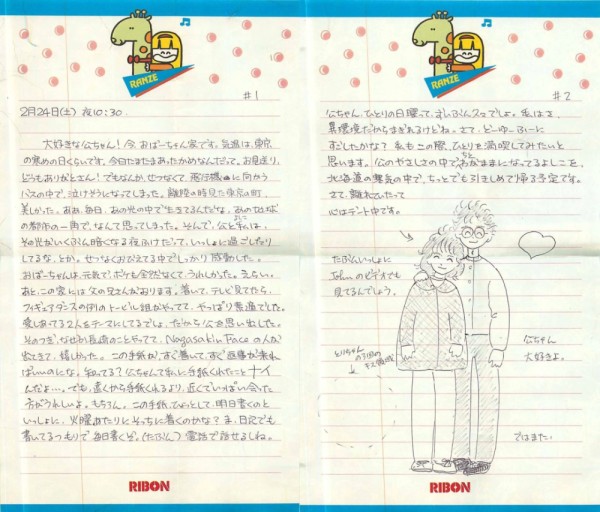 RANZE
#1
2月24日(土) 夜10:30.
大好きな公ちゃん! 今 おばーちゃん家です。気温は、東京
の寒めの日くらいです。今日はたまたまあったかめなんだって。お見送り、
どうもありがとさん! でもなんか、せつなくて、飛行機に向かう
バスの中で、泣けそうになってしまった。離陸の時見た東京の町、
美しかった。ああ、毎日、あの光の中で生きてるんだな、
の都市の一角で、なんて思ってしまった。そんで、公と私は、
その光がいくぶん暗くなる夜ふけだって、いっしょに過ごしたり
してるな、とか。せつなくおぼえてる中でしっかり感動した。
おばーちゃんは、元気で、ボケも全然なくて、うれしかった。えらい。
あと、この家には父の兄さんがおります。着いて、テレビ見てたら、
フィギュアダンスの例のトービル組がやってて、やっぱり素適でした。
愛しあってる2人をテーマにしてるでしょ、だから公を思い出した。
そのつぎ、なぜか長崎のことやってて、Nagasakin Faceの人が
出てきて、嬉しかった。この手紙が、すぐ着いて、すぐ返事が来れ
ばいーのにな。知ってる? 公ちゃんて私に手紙くれたことナイ
んだよ…。でも、遠くから手紙くれるより、近くでいっぱい会った
方がうれしいよ。もちろん。この手紙、ひょっとして、明日書くのと
いっしょに、火曜あたりにそっちに着くのかな? ま、日記でも
書いてるつもりで毎日書くぞ。(たぶん) 電話で話せるしね。
RIBON
RANZE
#2
公ちゃん、ひとりの日曜って、さしぶんスつでしょ。私はさ、
異環境だからまぎれるけどね。さて、どーゆーふーに
すごしたかな? 私もこの際、ひとりを満喫してみたいと
思います。公のやさしさの中で、ちとわがままになってるよしこを、
北海道の寒気の中で、ちっとでも引きしめて帰る予定です。
さて、離れていたって
心はデート中です。
たぶんいっしょに
Johnのビデオでも
見てるんでしょう。
公ちゃん
大好きよ。
ではまた。
RIBON